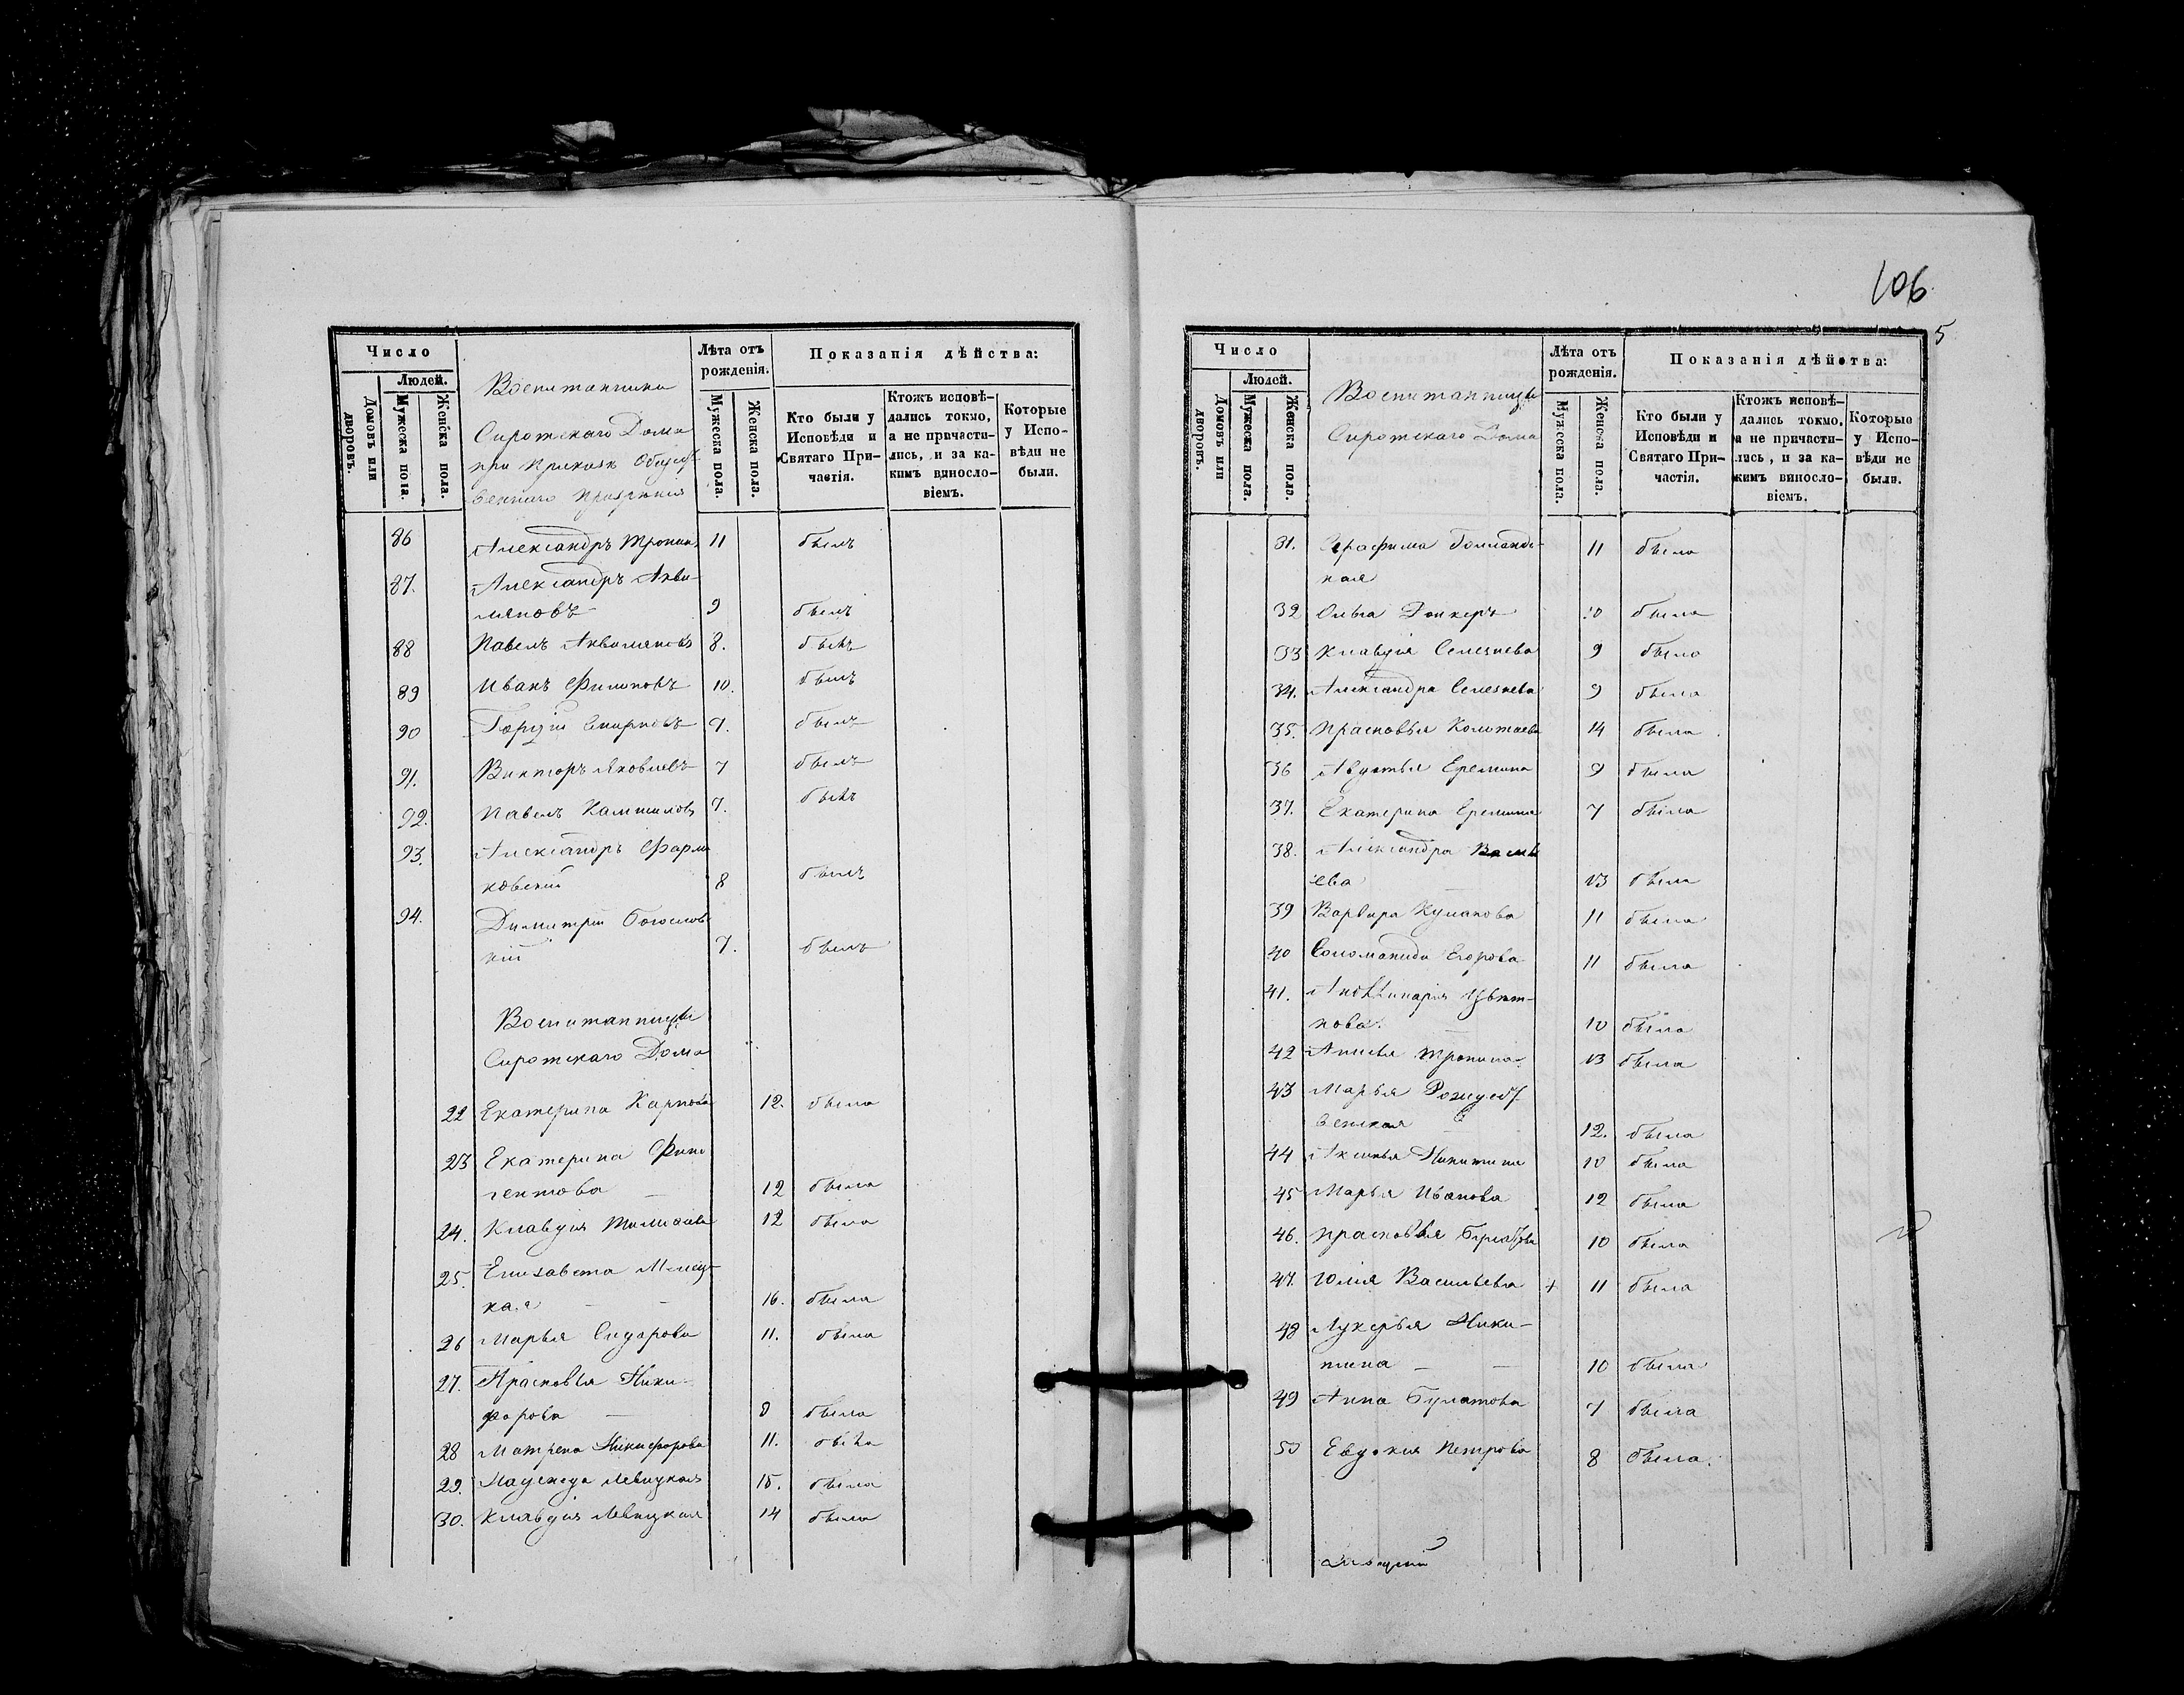 106
5
Число
Людей.
Домовъ или дворовъ.
Мужеска пола.
Женска пола.
Воспитанники
Сиротскаго Дома
при Приказѣ Общест
веннаго призрѣнія
Лѣта отъ рожденія.
Мужеска пола.
Женска пола.
Показанія дѣйства:
Кто были у Исповѣди и Святаго Причастія.
Ктожъ исповѣдались токмо, а не причастились, и за какимъ винословіемъ.
Которые у Исповѣди не были.
86 Александръ Тронинъ 11 былъ
87. Александръ Акви-
ляновъ 9 былъ
88 Павелъ Аквиляновъ 8. былъ
89 Иванъ Филиповъ 10. былъ
90 Смирновъ 9. былъ
91. Викторъ Яковлевъ 7 былъ
92. Павелъ 7. былъ
93. Александръ Фарма
ковскій 8 былъ
94. Димитрій Богослов
кій 7. былъ
Воспитанницы
Сиротскаго Дома
22 Екатерина Карпова 12. была
23 Екатерина Фини
гентова 12 была
24. Клавдія 12 была
25. Елисавета
кая 16. была
26 Марья Сидорова 11. была
27. Прасковья Ники-
форова 8 была
28 Матрена Никифорова 11. была
29. Надежда Левицкая 15. была
30. Клавдія Левицкая 14 была
Число
Людей.
Домовъ или дворовъ.
Мужеска пола.
Женска пола.
Воспитанницы
Сиротскаго Дома
Лѣта отъ рожденія.
Мужеска пола.
Женска пола.
Показанія дѣйства:
Кто были у Исповѣди и Святаго Причастія.
Ктожъ исповѣдались токмо, а не причастились, и за какимъ винословіемъ.
Которые у Исповѣди не были.
31. Серафима
ная 11 была
32 Ольга 10 была
33 Клавдія Селезнева 9 была
34. Александра Селезнева 9 была
35. Прасковья 14 была
36 Авдотья Еремина 9 была
37. Екатерина Еремина 7 была
38. Александра Василь
ева 13 была
39 Варвара Кулакова 11 была
40 Соломанида Егорова 11 была
41. Аполлинарія Цвѣт-
кова. 10 была
42 Анисья Тронина 13 была
43 Марья Рождест
венская 12. была
44 Аксинья Никитина 10 была
45 Марья Иванова 12 была
46. Прасковья 10 была
47. Юлія Васильева + 11 была
48 Лукерья Ники-
тина 10 была
49 Анна Булатова 7 была
50 Евдокия Петрова 8 была.